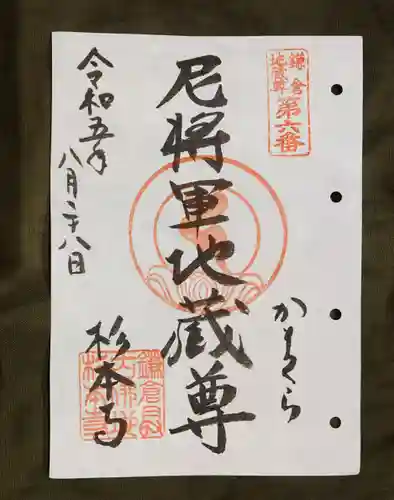 鎌倉
地蔵尊
第六番
かまくら
尼将軍地蔵尊
杉本寺
令和五年
八月二十八日